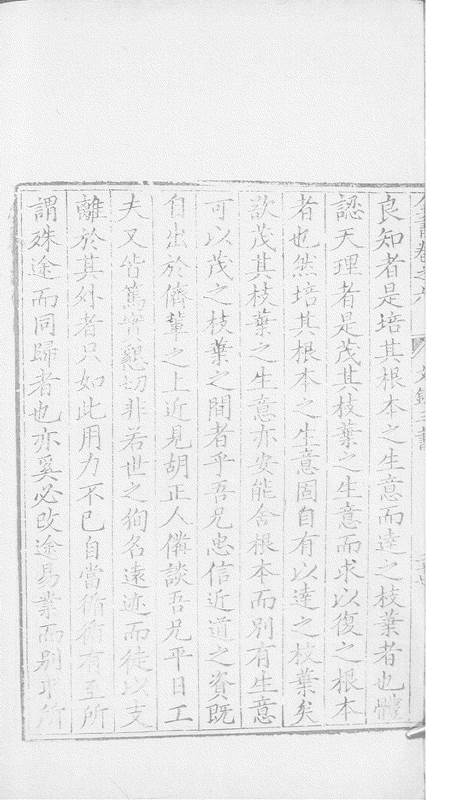 良知者是培其根本之生意而達之枝葉者也體
認天理者是茂其枝葉之生意而求以復之根本
者也然培其根本之生意固自有以達之枝葉矣
欲茂其枝葉之生意亦安能舍根本而別有生意
可以茂之枝葉之間者乎吾兄忠信近道之資既
自出於儕輩之上近見胡正人備談吾兄平日工
夫又皆篤實懇切非若世之狥名遠迹而徒以支
離於其外者只如此用力不已自當循循有至所
謂殊途而同歸者也亦奚必改途易業而别求所